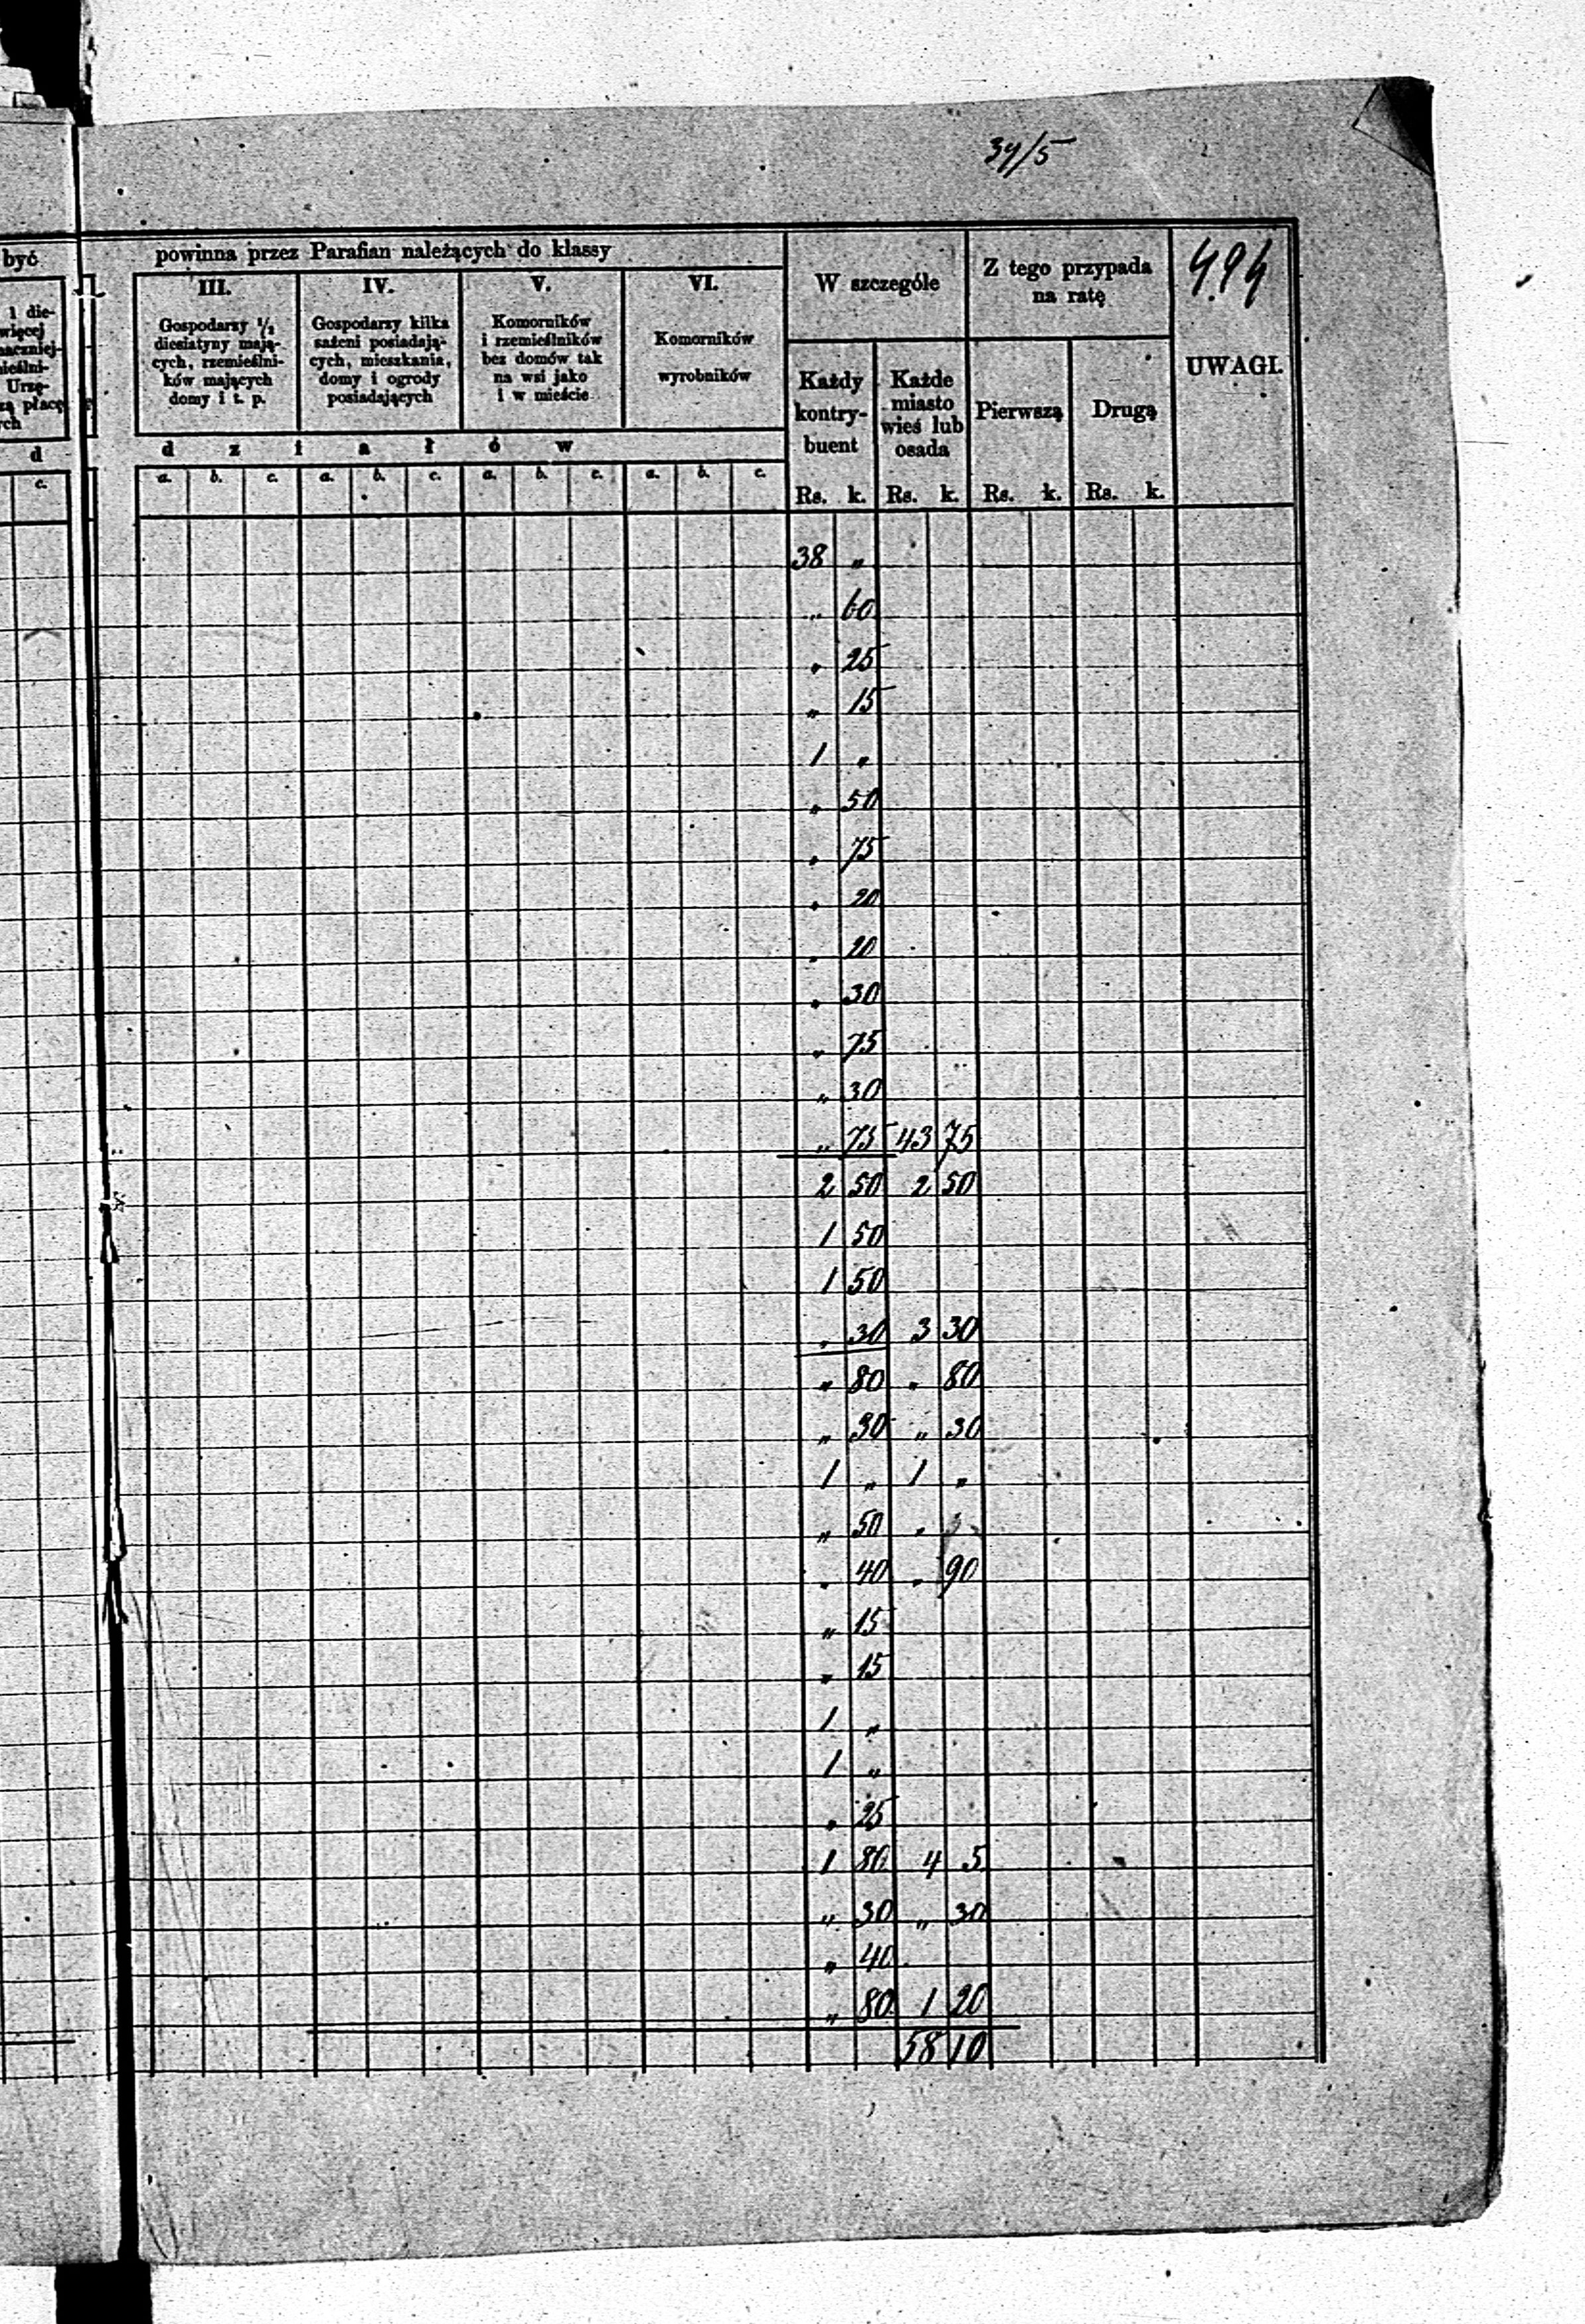 34/5
być powinna przez Parafian należących do klassy
W szczególe
Z tego przypada
na ratę
494
UWAGI.
1 die-
d
c.
III.
Gospodarzy 1/2
diesiatyny mają-
cych, rzemieślni-
ków mających
domy i t. p.
IV.
Gospodarzy kilka
sażeni posiadają-
cych, mieszkania,
domy i ogrody
posiadających
V.
Komorników
i rzemieślników
bez domów tak
na wsi jako
i w mieście
VI.
Komorników
wyrobników
d z i a ł ó w
a. b. c. a. b. c. a. b. c. a. b. c.
Każdy
kontry-
buent
Rs. k.
Każde
miasto
wieś lub
osada
Rs. k.
Pierwszą
Rs. k.
Drugą
Rs. k.
38 „
„ 60
„ 25
„ 15
1 „
„ 50
„ 75
„ 20
„ 20
„ 30
„ 75
„ 30
„ 75 43 75
2 50 2 50
1 50
1 50
„ 30 3 30
„ 80 „ 80
„ 30 „ 30
1 „ 1 „
„ 50 „
„ 40 „ 90
„ 15
„ 15
1 „
1 „
„ 25
1 80 4 5
„ 30 „ 30
„ 40
„ 80 1 20
58 10